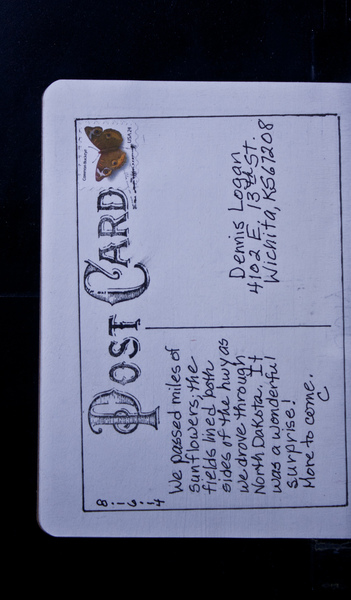 POST CARD
8·16·14
We passed miles of
sunflowers; the
fields lined both
sides of the hwy as
we drove through
North Dakota. It
was a wonderful
surprise!
More to come.
C
Dennis Logan
4102 E. 13th St.
Wichita, KS 67208
Common Buckeye
USA 24